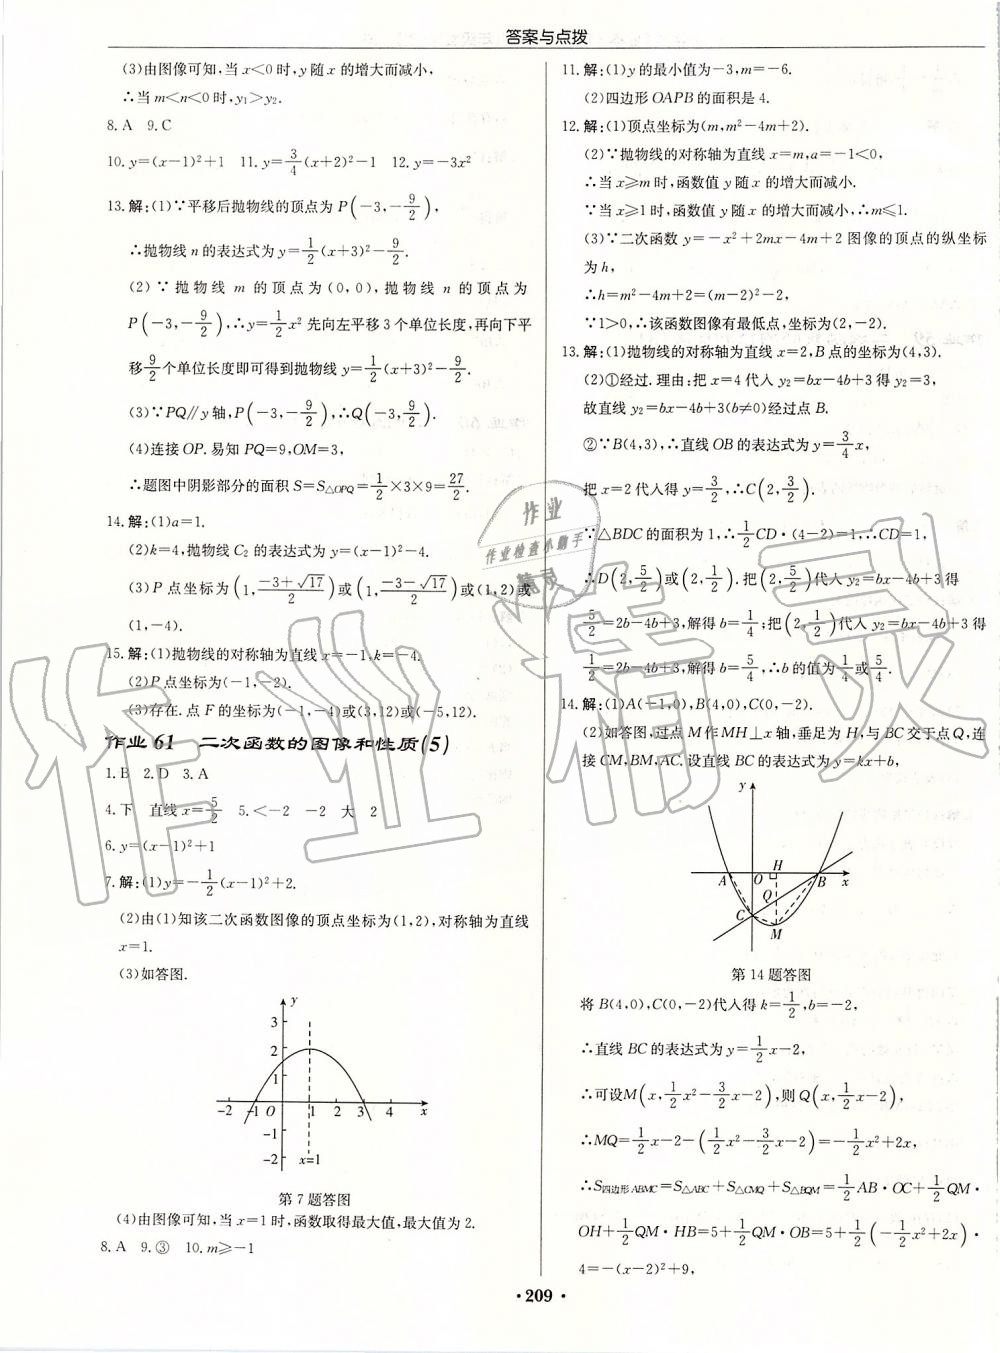 答案与点拨
(3)由图像可知,当 x<0 时,y 随 x 的增大而减小,
∴当 m<n<0 时,y₁>y₂.
8. A 9. C
10. y=(x-1)²+1 11. y=3/4(x+2)²-1 12. y=-3x²
13. 解:(1)∵平移后抛物线的顶点为 P(-3,-9/2),
∴抛物线 n 的表达式为 y=1/2(x+3)²-9/2.
(2)∵抛物线 m 的顶点为(0,0),抛物线 n 的顶点为
P(-3,-9/2),∴y=1/2x² 先向左平移 3 个单位长度,再向下平
移 9/2 个单位长度即可得到抛物线 y=1/2(x+3)²-9/2.
(3)∵PQ∥y 轴,P(-3,-9/2),∴Q(-3,9/2).
(4)连接 OP. 易知 PQ=9,OM=3,
∴题图中阴影部分的面积 S=S△OPQ=1/2×3×9=27/2.
14. 解:(1)a=1.
(2)k=4,抛物线 C₂ 的表达式为 y=(x-1)²-4.
(3)P 点坐标为(1,(-3+√17)/2)或(1,(-3-√17)/2)或(1,2)或
(1,-4).
15. 解:(1)抛物线的对称轴为直线 x=-1,k=-4.
(2)P 点坐标为(-1,-2).
(3)存在. 点 F 的坐标为(-1,-4)或(3,12)或(-5,12).
作业 61 二次函数的图像和性质(5)
1. B 2. D 3. A
4. 下 直线 x=5/2 5. <-2 -2 大 2
6. y=(x-1)²+1
7. 解:(1)y=-1/2(x-1)²+2.
(2)由(1)知该二次函数图像的顶点坐标为(1,2),对称轴为直线
x=1.
(3)如答图.
y
3
2
1
-2 -1 O 1 2 3 4 x
-1
-2 x=1
第 7 题答图
(4)由图像可知,当 x=1 时,函数取得最大值,最大值为 2.
8. A 9. ③ 10. m≥-1
11. 解:(1)y 的最小值为-3,m=-6.
(2)四边形 OAPB 的面积是 4.
12. 解:(1)顶点坐标为(m,m²-4m+2).
(2)∵抛物线的对称轴为直线 x=m,a=-1<0,
∴当 x≥m 时,函数值 y 随 x 的增大而减小.
∵当 x≥1 时,函数值 y 随 x 的增大而减小,∴m≤1.
(3)∵二次函数 y=-x²+2mx-4m+2 图像的顶点的纵坐标
为 h,
∴h=m²-4m+2=(m-2)²-2.
∵1>0,∴该函数图像有最低点,坐标为(2,-2).
13. 解:(1)抛物线的对称轴为直线 x=2,B 点的坐标为(4,3).
(2)①经过. 理由:把 x=4 代入 y₂=bx-4b+3 得 y₂=3,
故直线 y₂=bx-4b+3(b≠0)经过点 B.
②∵B(4,3),∴直线 OB 的表达式为 y=3/4x,
把 x=2 代入得 y=3/2,∴C(2,3/2).
∵△BDC 的面积为 1,∴1/2CD·(4-2)=1,∴CD=1,
∴D(2,5/2)或(2,1/2). 把(2,5/2)代入 y₂=bx-4b+3 得
5/2=2b-4b+3,解得 b=1/4;把(2,1/2)代入 y₂=bx-4b+3 得
1/2=2b-4b+3,解得 b=5/4,∴b 的值为 1/4 或 5/4.
14. 解:(1)A(-1,0),B(4,0),C(0,-2).
(2)如答图,过点 M 作 MH⊥x 轴,垂足为 H,与 BC 交于点 Q,连
接 CM,BM,AC. 设直线 BC 的表达式为 y=kx+b,
y
H
A O B x
Q
C
M
第 14 题答图
将 B(4,0),C(0,-2)代入得 k=1/2,b=-2,
∴直线 BC 的表达式为 y=1/2x-2,
∴可设M(x,1/2x²-3/2x-2),则 Q(x,1/2x-2),
∴MQ=1/2x-2-(1/2x²-3/2x-2)=-1/2x²+2x,
∴S四边形ABMC=S△ABC+S△CMQ+S△BQM=1/2AB·OC+1/2QM·
OH+1/2QM·HB=5+1/2QM·OB=5+1/2(-1/2x²+2x)·
4=-(x-2)²+9,
·209·
作业精灵
作业
作业检查小助手
精灵